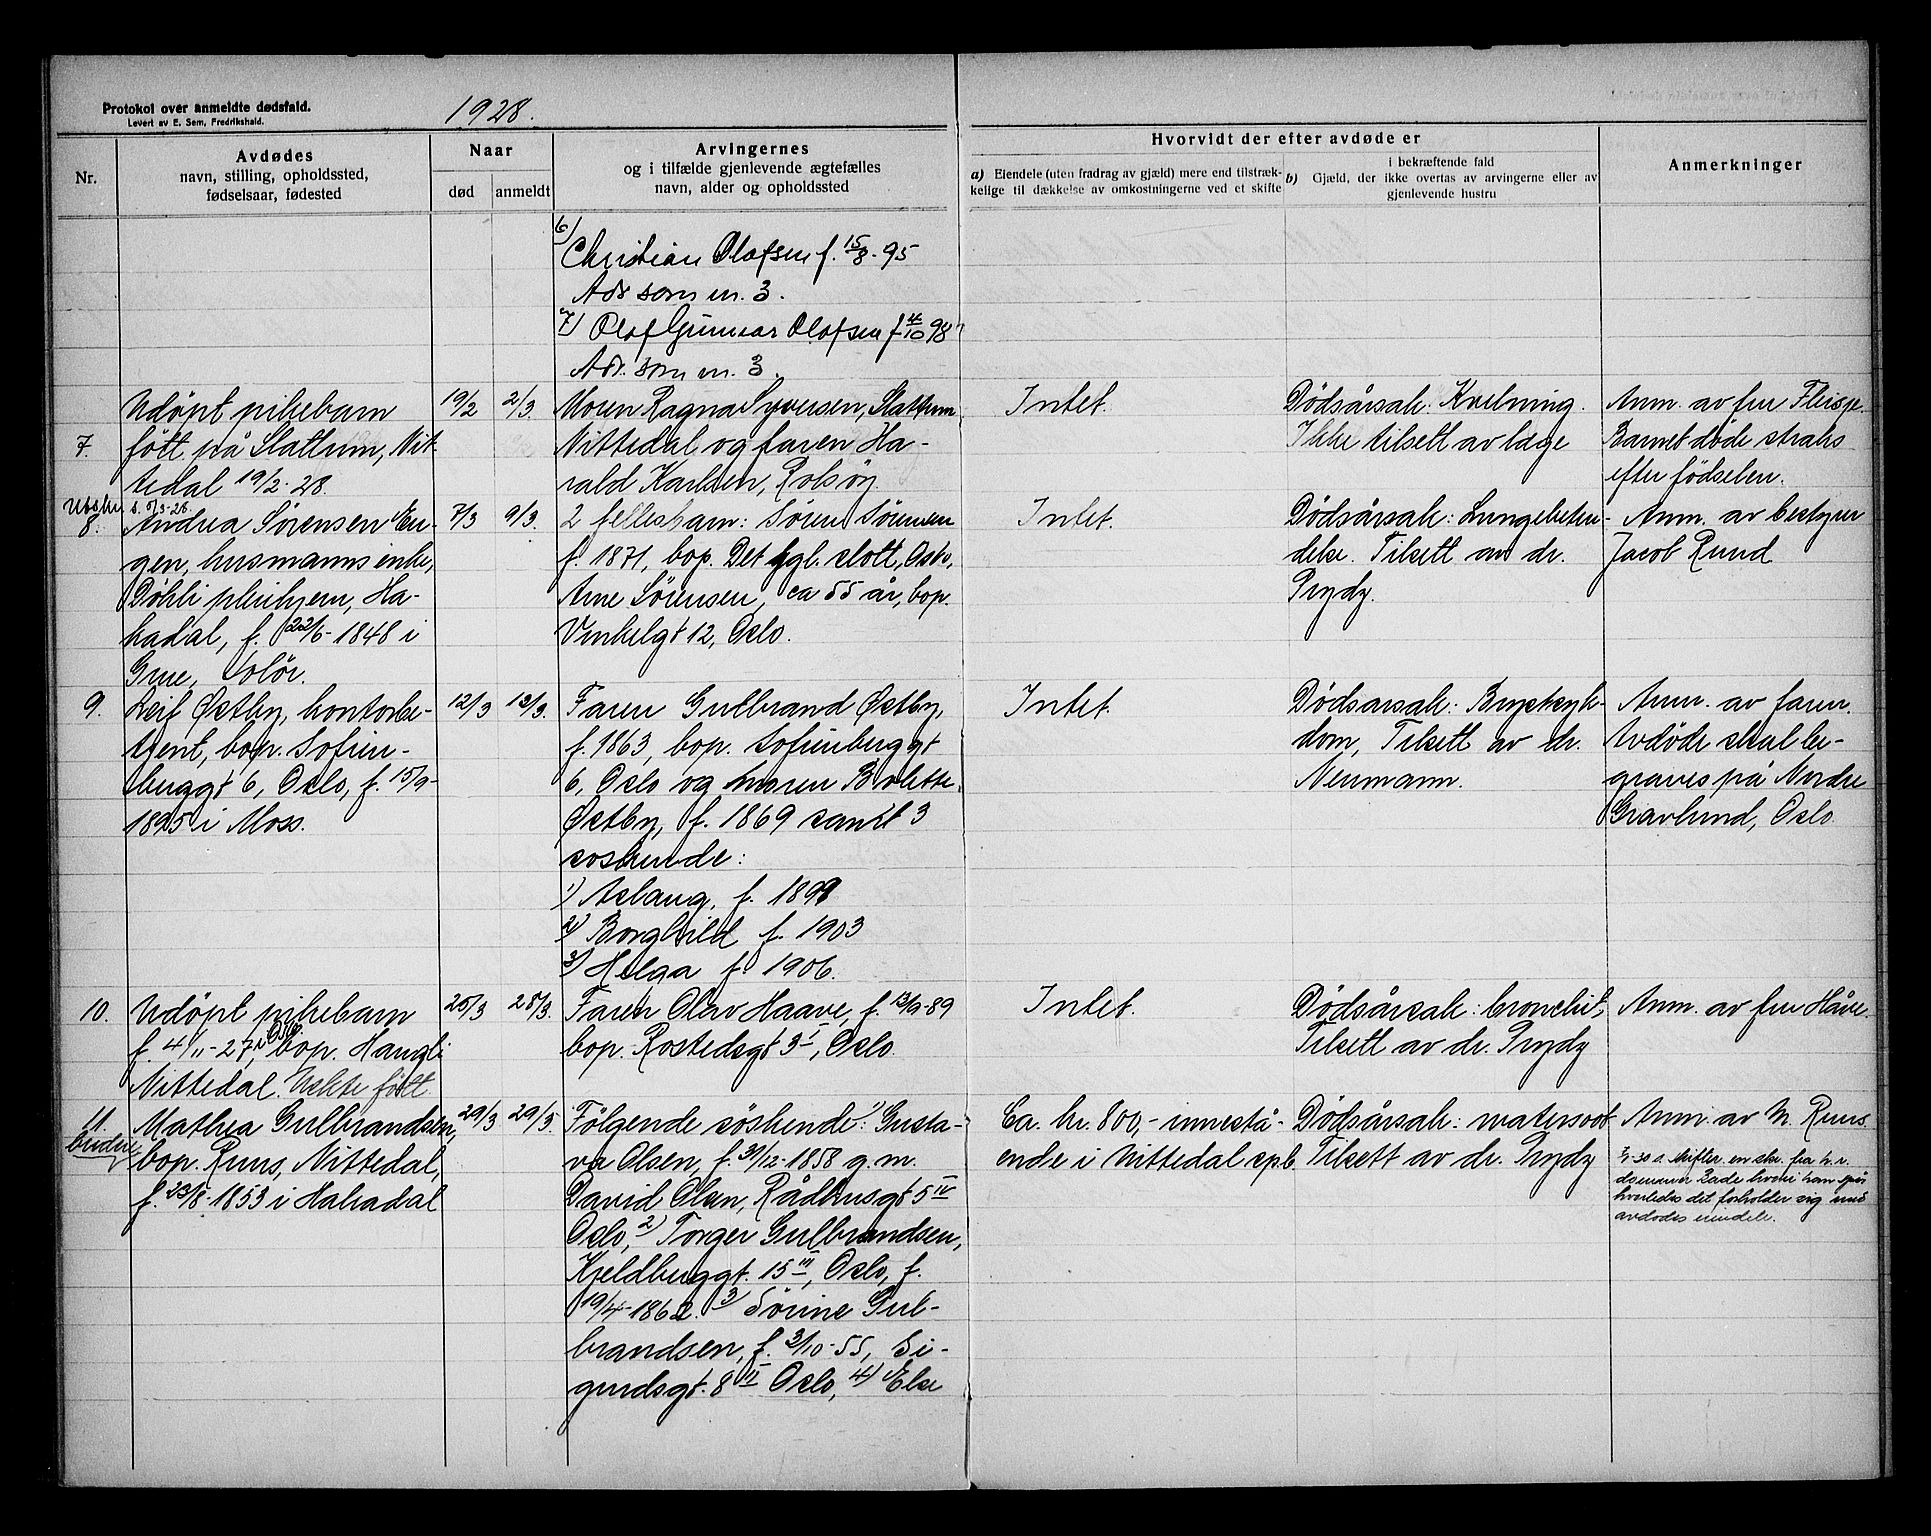 Protokol over anmeldte dødsfald.
Levert av E. Sem, Fredrikshald.
1928.
Nr.
Avdødes
navn, stilling, opholdssted,
fødselsaar, fødested
Naar
død
anmeldt
Arvingernes
og i tilfælde gjenlevende ægtefælles
navn, alder og opholdssted
Hvorvidt der efter avdøde er
a) Eiendele (uten fradrag av gjæld) mere end tilstræk-
kelige til dækkelse av omkostningerne ved et skifte
i bekræftende fald
b) Gjæld, der ikke overtas av arvingerne eller av
gjenlevende hustru
Anmerkninger
6)
Christian Olafsen f. 15/8-95
Adr som nr. 3.
7) Olaf Gunnar Olafsen f 4/10 98
Adr. som nr. 3.
7.
Udöpt pikebarn
fött på Slattum, Nit-
tedal 19/2-28.
19/2
2/3.
Moren Ragna Syversen, Slattum
Nittedal og faren Ha-
rald Karlsen, Rolsöy.
Intet.
Dødsårsak: Kvelning.
Ikke tilsett av læge
Anm. av fru
Barnet døde straks
efter fødselen.
8.
Andrea Sörensen En-
gen, husmannsenke,
Döhli pleiehjem, Ha-
kadal, f. 22/6-1848 i
Grue, Solör.
7/3
9/3.
2 fellesbarn: Sören Sörensen
f. 1871, bop. Det kgl. slott, Oslo,
Arne Sörensen, ca 55 år, bop.
Vinkelgt 12, Oslo.
Intet.
Dødsårsak: Lungebeten-
delse. Tilsett av dr.
Prydz.
Anm. av bestyrer
Jacob Ruud
9.
Leif Østby, kontorbe-
tjent, bop. Sofien-
berggt 6, Oslo, f. 15/9-
1895 i Moss.
12/3
13/3.
Faren Gulbrand Østby,
f. 1863, bop. Sofienberggt
6, Oslo og moren Bolette
Østby, f. 1869 samt 3
søskende:
1) Aslaug, f. 1899
2) Borghild f. 1903
3) Helga f 1906.
Intet.
Dødsårsak: Brystsyk-
dom, Tilsett av dr.
Neumann.
Anm. av faren.
Avdøde skal be-
graves på Nordre
Gravlund, Oslo
10.
Udöpt pikebarn
f. 4/11-27, i Oslo bop. Haugli
Nittedal. Uekte fött
25/3
28/3.
Faren Olav Haave, f. 13/9-89
bop. Rostedsgt 3 I, Oslo
Intet.
Dødsårsak: bronchit,
Tilsett av dr. Prydz
Anm. av fru Håve.
11.
Mathea Gulbrandsen,
bop. Ruus, Nittedal,
f. 23/8-1853 i Hakadal
29/3
29/3.
Fölgende söskende: 1) Gusta-
va Olsen, f. 31/12-1858 g.m.
David Olsen, Rådhusgt 5 IV
Oslo, 2) Torger Gulbrandsen,
Kjeldberggt. 15 III, Oslo, f.
19/4-1862. 3) Sörine Gul-
brandsen, f. 3/10-55, Si-
gurdsgt. 8 II Oslo, 4) Else
Ca. kr. 800,- innestå-
ende i Nittedal spb.
Dødsårsak: watersoot
Tilsett av dr. Prydz
Anm. av N. Ruus.
en skr. fra h. r.
dommer hvori han spør
hvorledes det forholder sig med
avdødes midele.